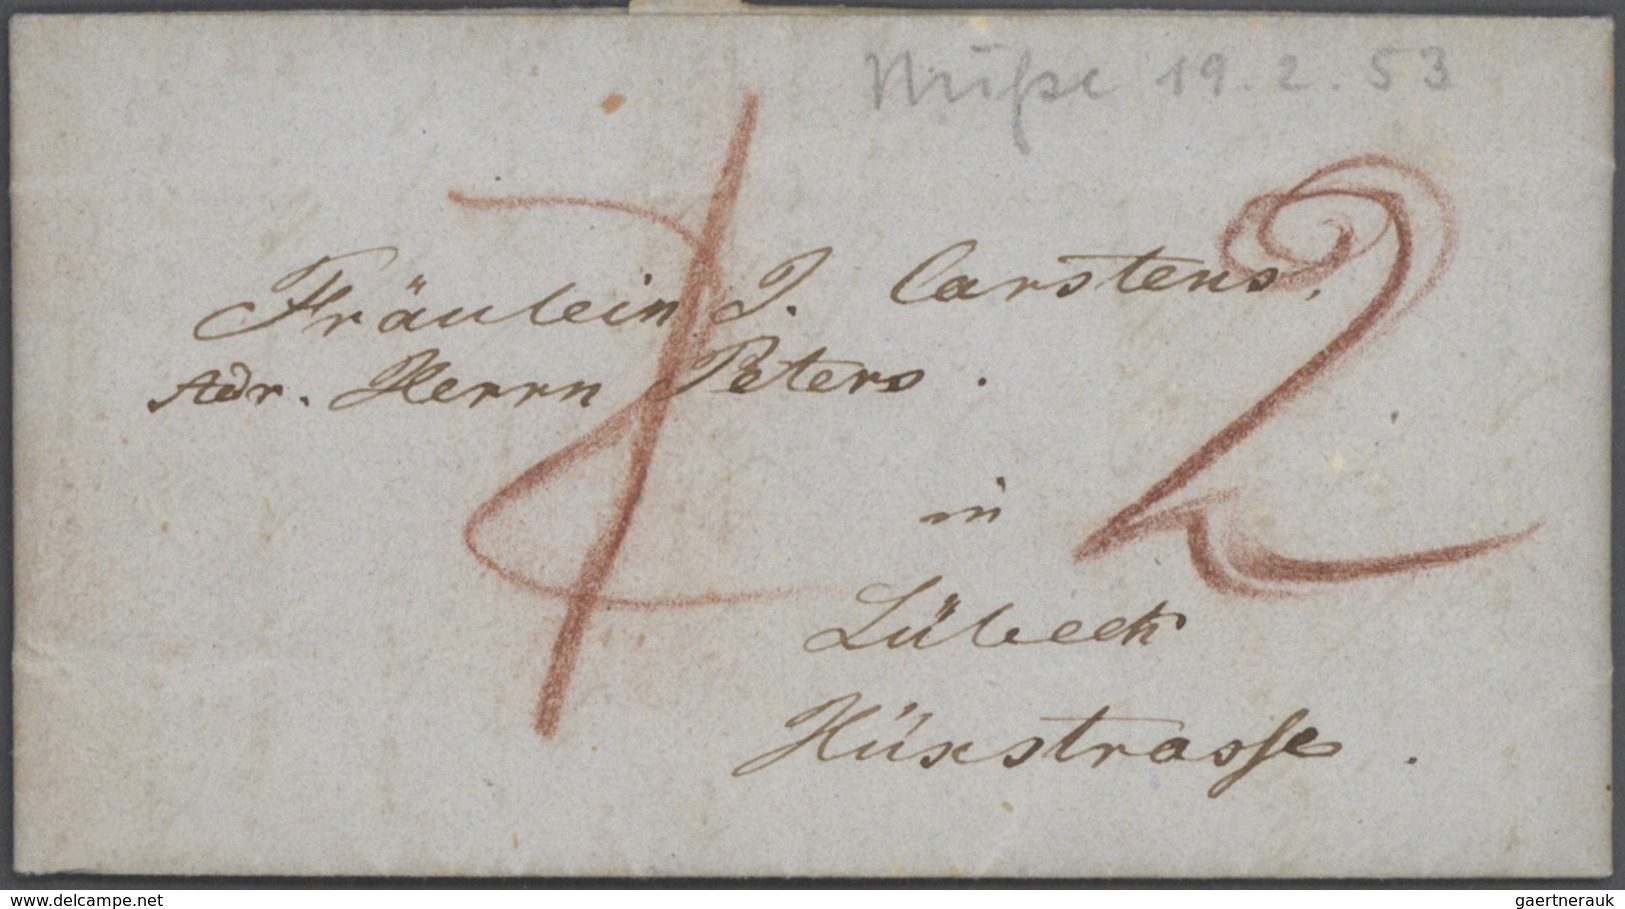 Nüsse 19.2.53
2
Fräulein J. Carstens,
Adr. Herrn Peters.
in
Lübeck
Hüxstrasse.
www.delcampe.net
gaertnerauk